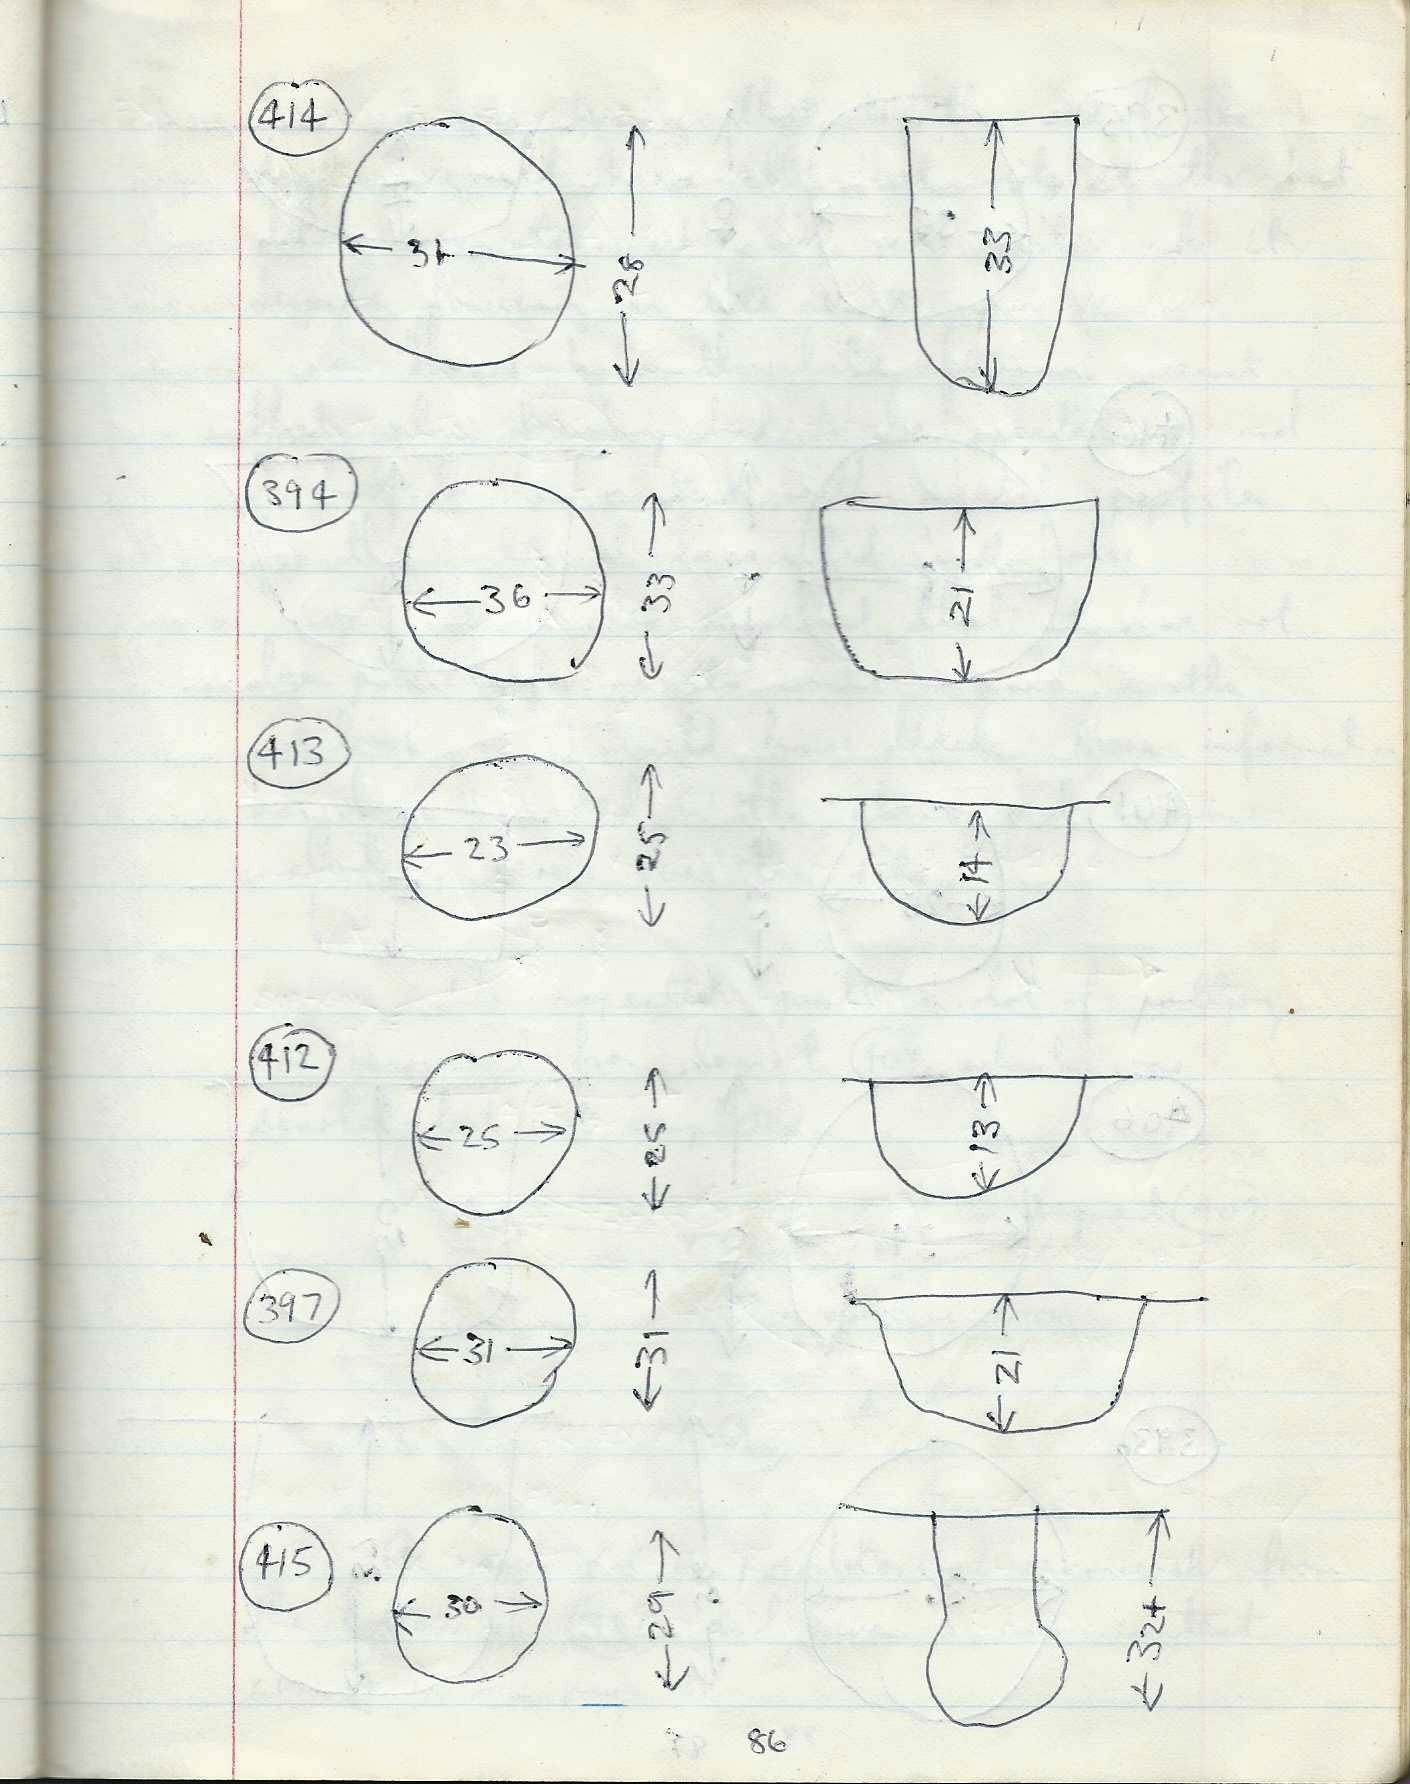 414
31
28
33
394
36
33
21
413
23
25
14
412
25
25
13
397
31
31
21
415
30
29
32+
86